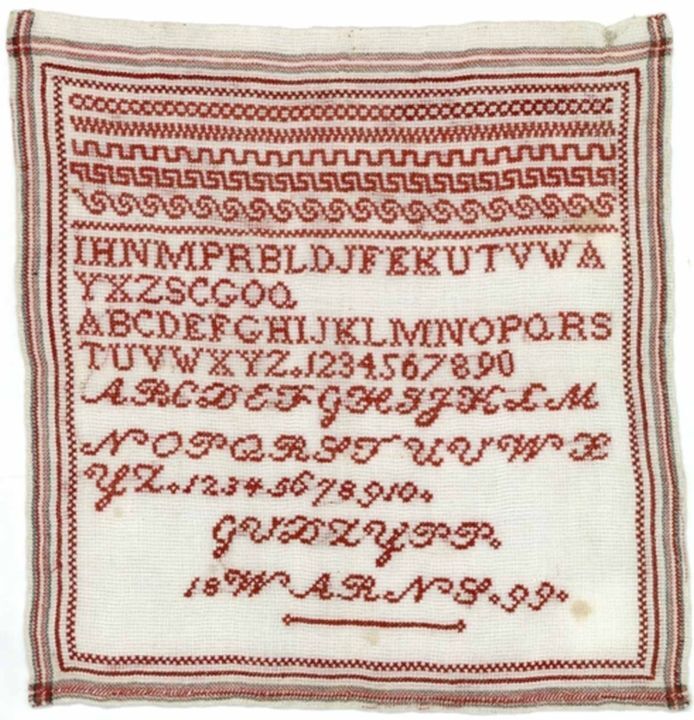 IHNMPRBLDJFEKUTVWA
YXZSCGOQ
ABCDEFGHIJKLMNOPQRS
TUVWXYZ.1234567890
ABCDEFGHIJKLM
NOPQRSTUVWX
YZ.12345678910.
GVDZYPP.
18WARNS.99.